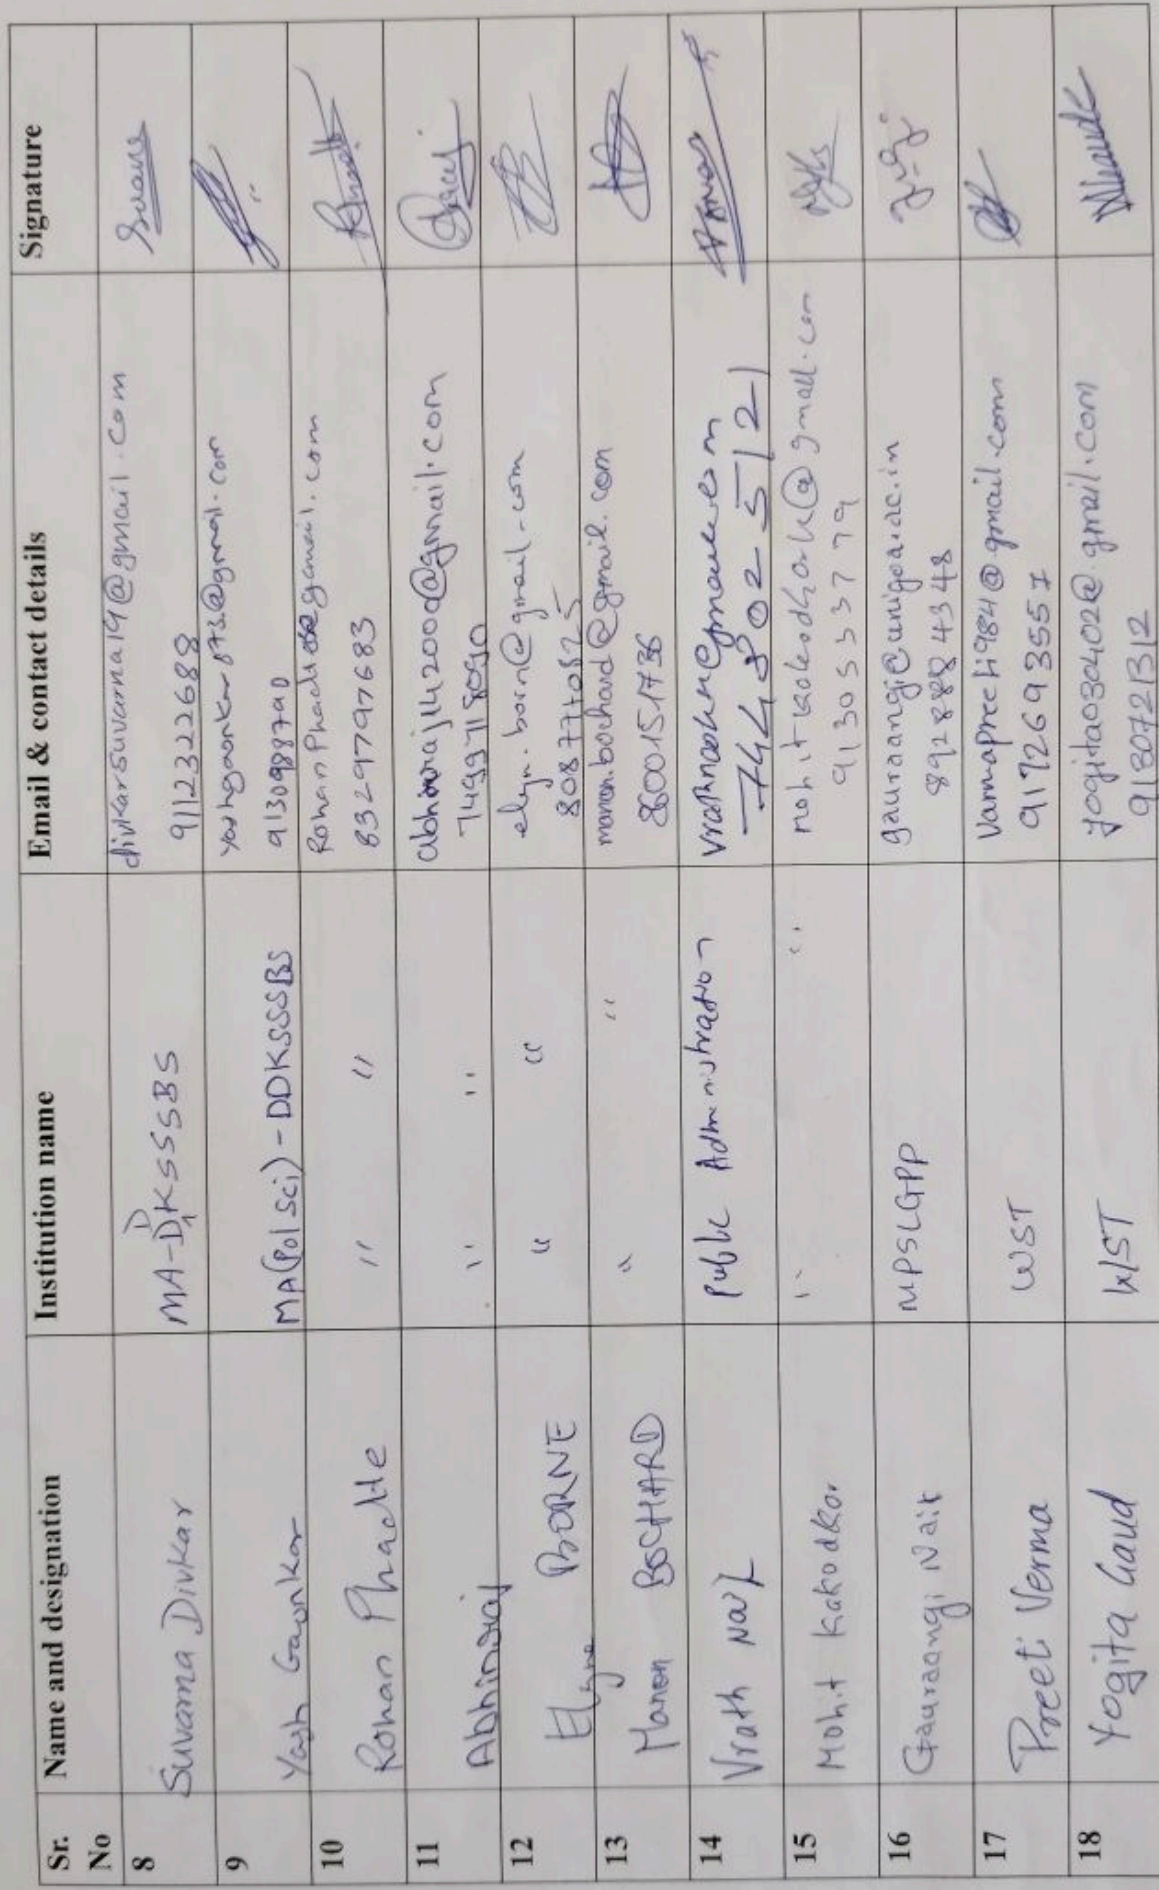 Sr. No Name and designation Institution name Email & contact details Signature
8 Suvarna Divkar MA-DDKSSSBS divkarsuvarna19@gmail.com
9112322688
9 Yash Gaonkar MA(Pol Sci)-DDKSSSBS yashgaonkar873@gmail.com
9130988790
10 Rohan Phadte " " 8329797683
11 Abhinraj " " abhinraj142000@gmail.com
12 Elyne BORNE " " elyn.born@gmail.com
13 Manon BOCHARD " " manon.bochard@gmail.com
8600151736
14 Vrath Naik Public Administration
7448025121
15 Mohit Kakodkar " " mohitkakodkark@gmail.com
9130553779
16 Gauraangi Naik MPSLGPP gauraangi@unigoa.ac.in
8928884348
17 Preeti Verma WST Varmapreeti984@gmail.com
9172693557
18 Yogita Gaud WST yogita030402@.gmail.com
9130721312